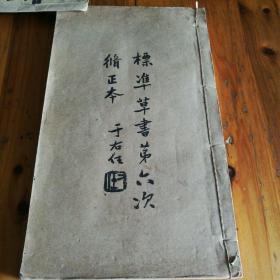 標準草書第六次
脩正本 于右任